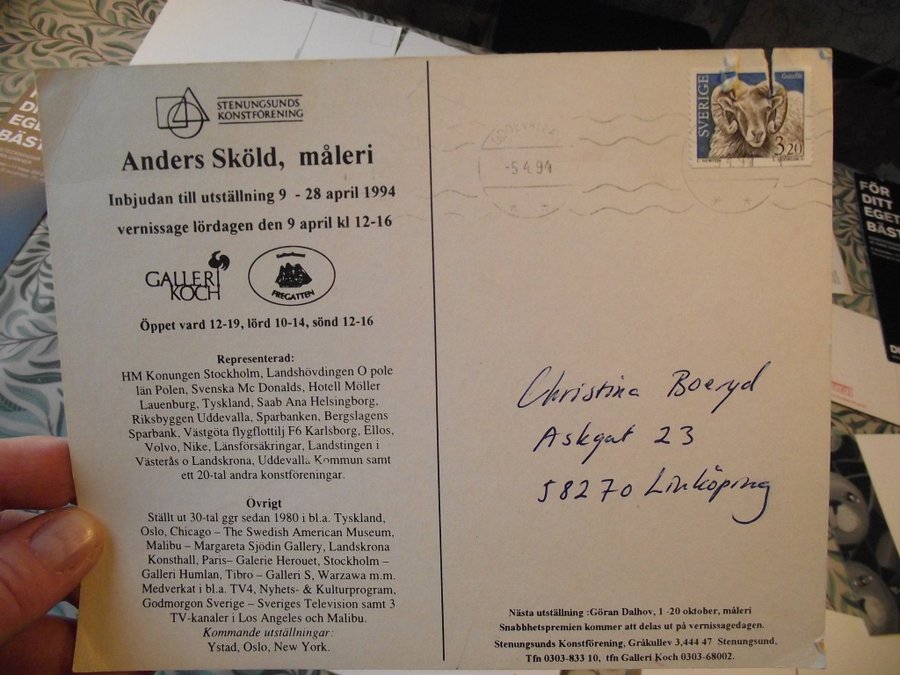 STENUNGSUNDS
KONSTFÖRENING
Anders Sköld, måleri
Inbjudan till utställning 9 - 28 april 1994
vernissage lördagen den 9 april kl 12-16
GALLERI
KOCH
FREGATTEN
Öppet vard 12-19, lörd 10-14, sönd 12-16
Representerad:
HM Konungen Stockholm, Landshövdingen O pole
län Polen, Svenska Mc Donalds, Hotell Möller
Lauenburg, Tyskland, Saab Ana Helsingborg,
Riksbyggen Uddevalla, Sparbanken, Bergslagens
Sparbank, Västgöta flygflottilj F6 Karlsborg, Ellos,
Volvo, Nike, Länsförsäkringar, Landstingen i
Västerås o Landskrona, Uddevalla Kommun samt
ett 20-tal andra konstföreningar.
Övrigt
Ställt ut 30-tal ggr sedan 1980 i bl.a. Tyskland,
Oslo, Chicago – The Swedish American Museum,
Malibu – Margareta Sjödin Gallery, Landskrona
Konsthall, Paris– Galerie Herouet, Stockholm –
Galleri Humlan, Tibro – Galleri S, Warzawa m.m.
Medverkat i bl.a. TV4, Nyhets- & Kulturprogram,
Godmorgon Sverige – Sveriges Television samt 3
TV-kanaler i Los Angeles och Malibu.
Kommande utställningar:
Ystad, Oslo, New York.
UDDEVALLA
-5 4. 94
SVERIGE
3.20
Christina Boeryd
Askgat 23
58270 Linköping
Nästa utställning :Göran Dalhov, 1 -20 oktober, måleri
Snabbhetspremien kommer att delas ut på vernissagedagen.
Stenungsunds Konstförening, Gråkullev 3,444 47 Stenungsund,
Tfn 0303-833 10, tfn Galleri Koch 0303-68002.
FÖR
DITT
EGET
BÄST